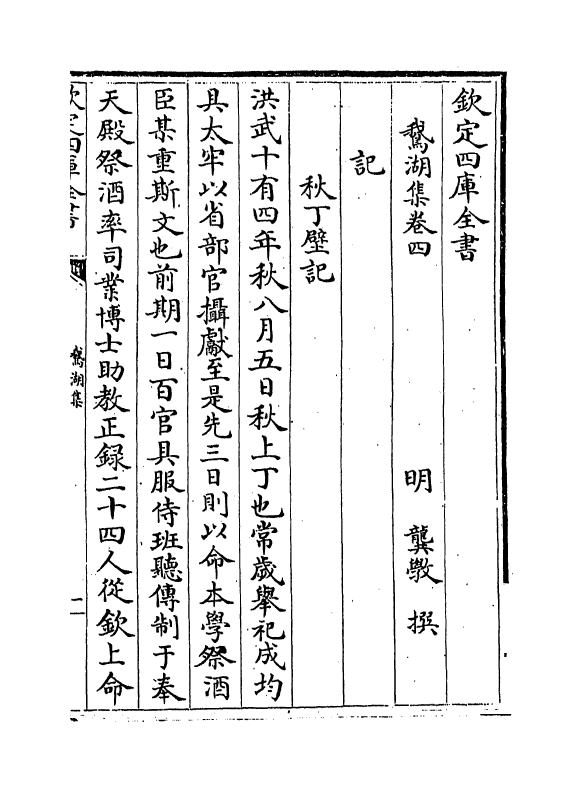 欽定四庫全書
鵞湖集卷四
明 龔斆 撰
記
秋丁壁記
洪武十有四年秋八月五日秋上丁也常歲舉祀成均
具太牢以省部官攝獻至是先三日則以命本學祭酒
臣某重斯文也前期一日百官具服侍班聽傳制于奉
天殿祭酒率司業博士助教正録二十四人從欽上命
欽定四庫全書
鵞湖集